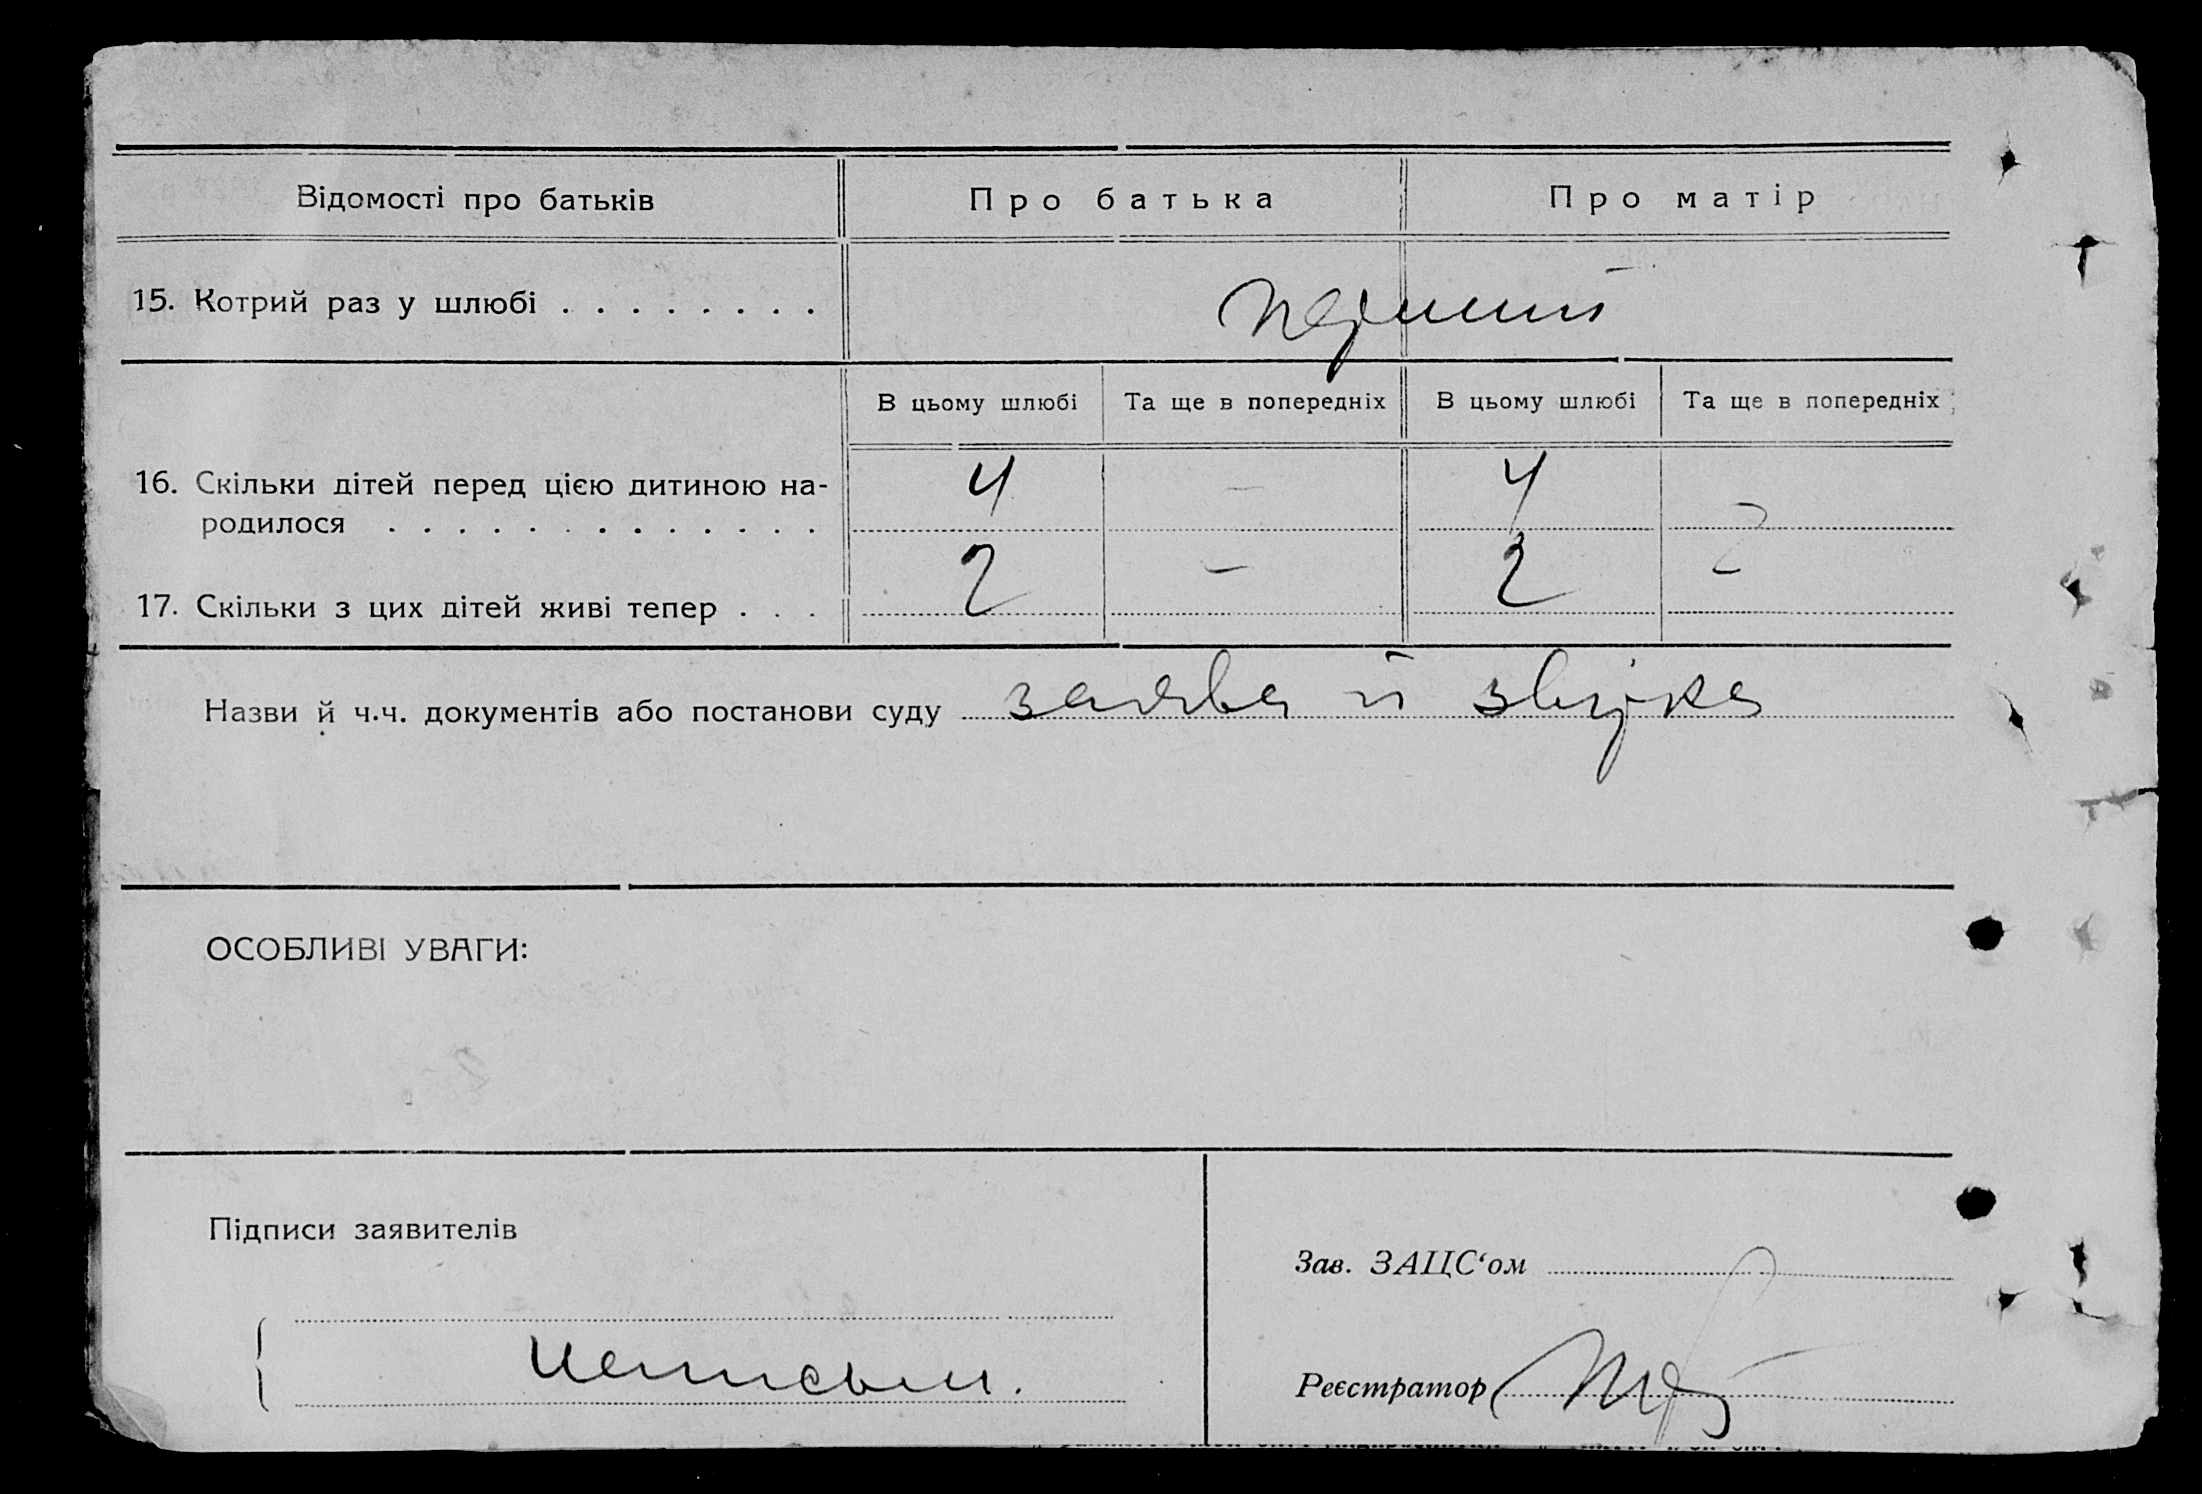 Відомості про батьків Про батька Про матір
15. Котрий раз у шлюбі . . . . . . . . перший
В цьому шлюбі Та ще в попередніх В цьому шлюбі Та ще в попередніх
16. Скільки дітей перед цією дитиною на-
родилося . . . . . . . . . . . . . 4 – 4
17. Скільки з цих дітей живі тепер . . . 2 – 2 –
Назви й ч.ч. документів або постанови суду заява й звідка
ОСОБЛИВІ УВАГИ:
Підписи заявителів
Зав. ЗАЦС‘ом
неписьм.
Реєстратор